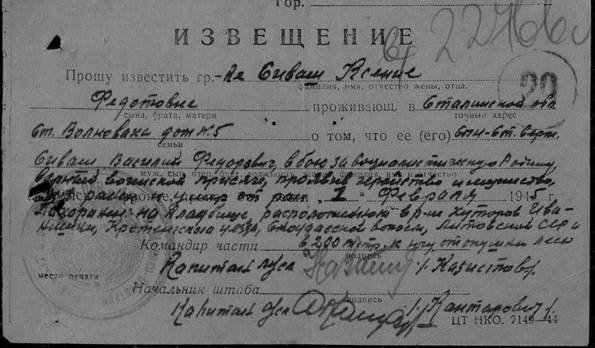 Гор.
ИЗВЕЩЕНИЕ
22
Прошу известить гр.-ке Сиваш Ксение
фамилия, имя, отчество жены, отца,
Федотовне
проживающ. в Сталинской обл.
сына, брата, матери
точный адрес
ст. Волноваха дом №5
о том, что ее (его) сын-ст. серж.
семьи
Сиваш Василий Федорович, в бою за социалистическую Родину,
муж, сын, отец, брат,
верный воинской присяге, проявив геройство и мужество,
был ранен и умер от ран 1 Февраля 1945 г.
Похоронен: на кладбище, расположенного в р-не хуторов
уезда, волости, Литовской ССР
Командир части
6 200 метр. к югу от опушки леса
подпись
Капитан /Казистов/.
место печати
Начальник штаба
подпись
Капитан /Кантарович/.
ЦТ НКО. 2149—44